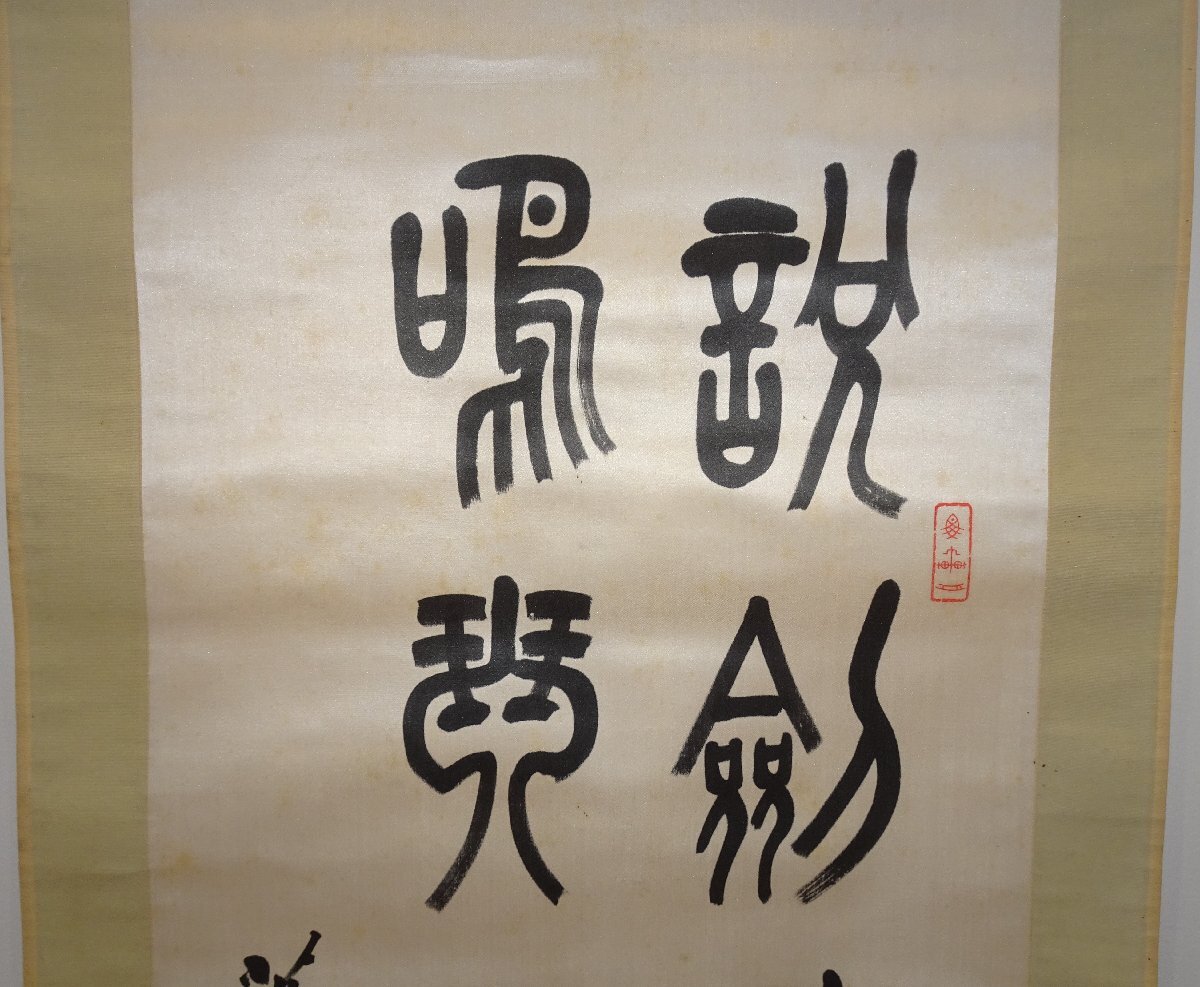 說劍
鳴琴